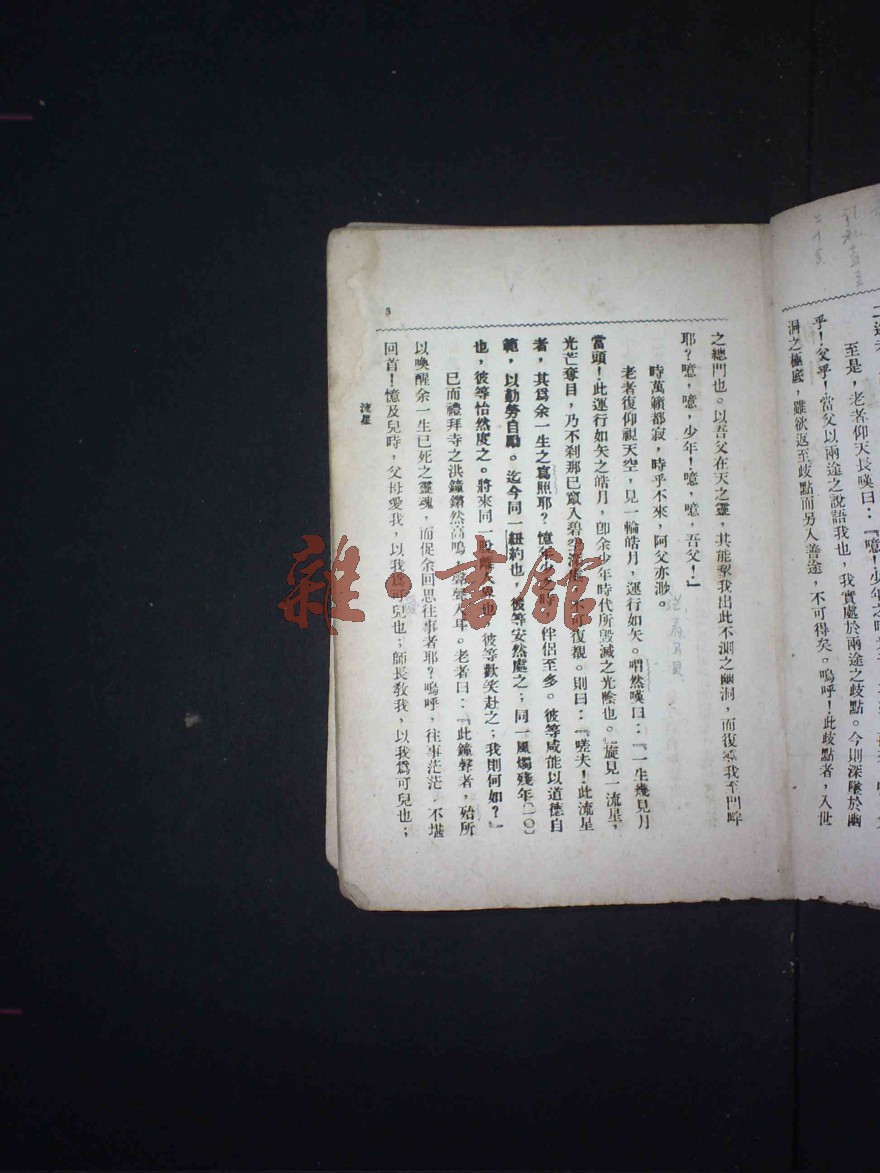 至是，老者仰天長嘆曰：『噫！少年之時
乎！父乎！當父以兩途之說語我也，我實處於兩途之歧點。今則深墜於幽
洞之極底，雖欲返至歧點而另入善途，不可得矣。嗚呼！此歧點者，入世
之總門也。以吾父在天之靈，其能挈我出此不測之幽洞，而復導我至門畔
耶？噫，噫，少年！噫，噫，吾父！』
時萬籟都寂，時乎不來，阿父亦渺。
老者復仰視天空，見一輪皓月，運行如矢。喟然嘆曰：『一生幾見月
當頭！此運行如矢之皓月，卽余少年時代所毀滅之光陰也。』旋見一流星，
光芒奪目，乃不刹那已竄入碧 不可復覩。則曰：『嗟夫！此流星
者，其爲余一生之寫照耶？憶年少之時，伴侶至多。彼等咸能以道德自
範，以勤勞自勵。迄今同一紐約也，彼等安然處之；同一風燭殘年(一〇)
也，彼等怡然度之。將來同一 離人界也，彼等歡笑赴之；我則何如？』
已而禮拜寺之洪鐘鏘然高鳴，聲聲入耳。老者曰：『此鐘聲者，殆所
以喚醒余一生已死之靈魂，而促余回思往事者耶？嗚呼，往事茫茫，不堪
回首！憶及兒時，父母愛我，以我爲可兒也；師長敎我，以我爲可兒也；
流星
3
雜·書館